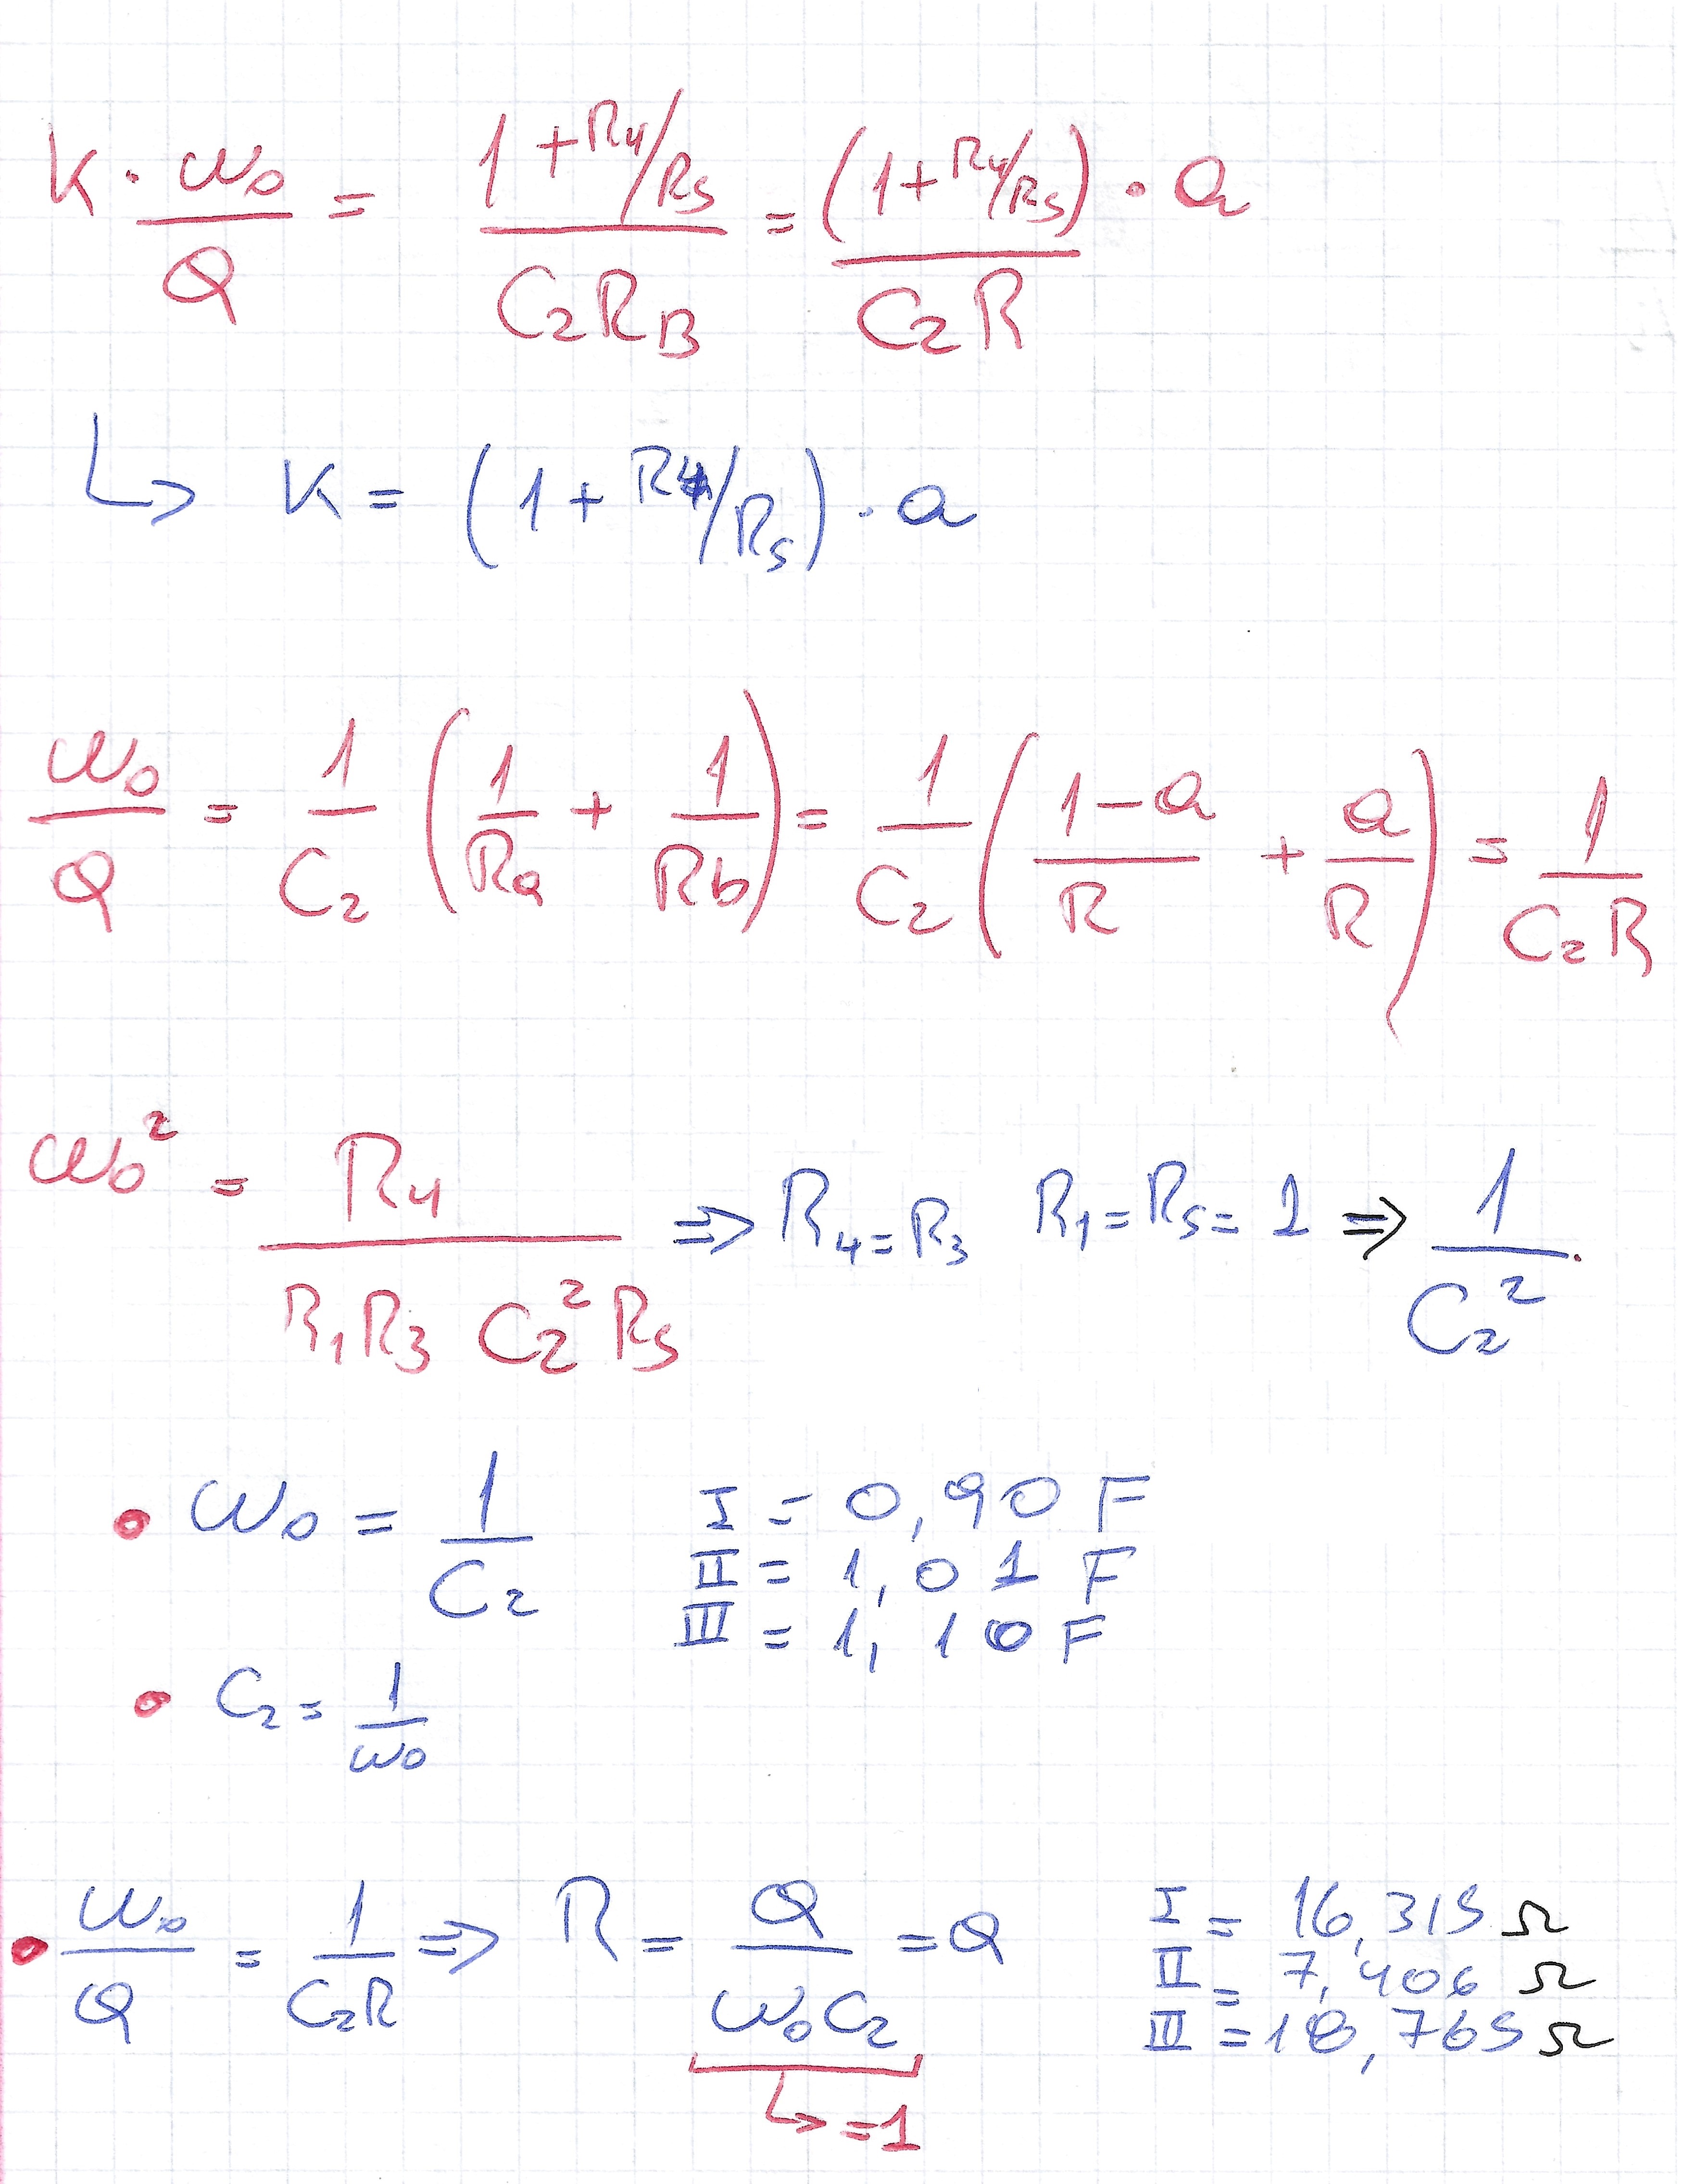 K · ω₀/Q = (1 + R₄/R₅)/(C₂R_B) = (1 + R₄/R₅)/(C₂R) · a
↳ K = (1 + R₄/R₅) · a
ω₀/Q = 1/C₂ (1/Ra + 1/Rb) = 1/C₂ ((1-a)/R + a/R) = 1/(C₂R)
ω₀² = R₄/(R₁R₃ C₂² R₅) ⇒ R₄=R₃ R₁=R₅= 1 ⇒ 1/C₂² .
• ω₀ = 1/C₂
I = 0,90 F
II = 1,01 F
III = 1,10 F
• C₂ = 1/ω₀
• ω₀/Q = 1/(C₂R) ⇒ R = Q/(ω₀C₂) = Q
↳ =1
I = 16,315 Ω
II = 7,406 Ω
III = 18,765 Ω